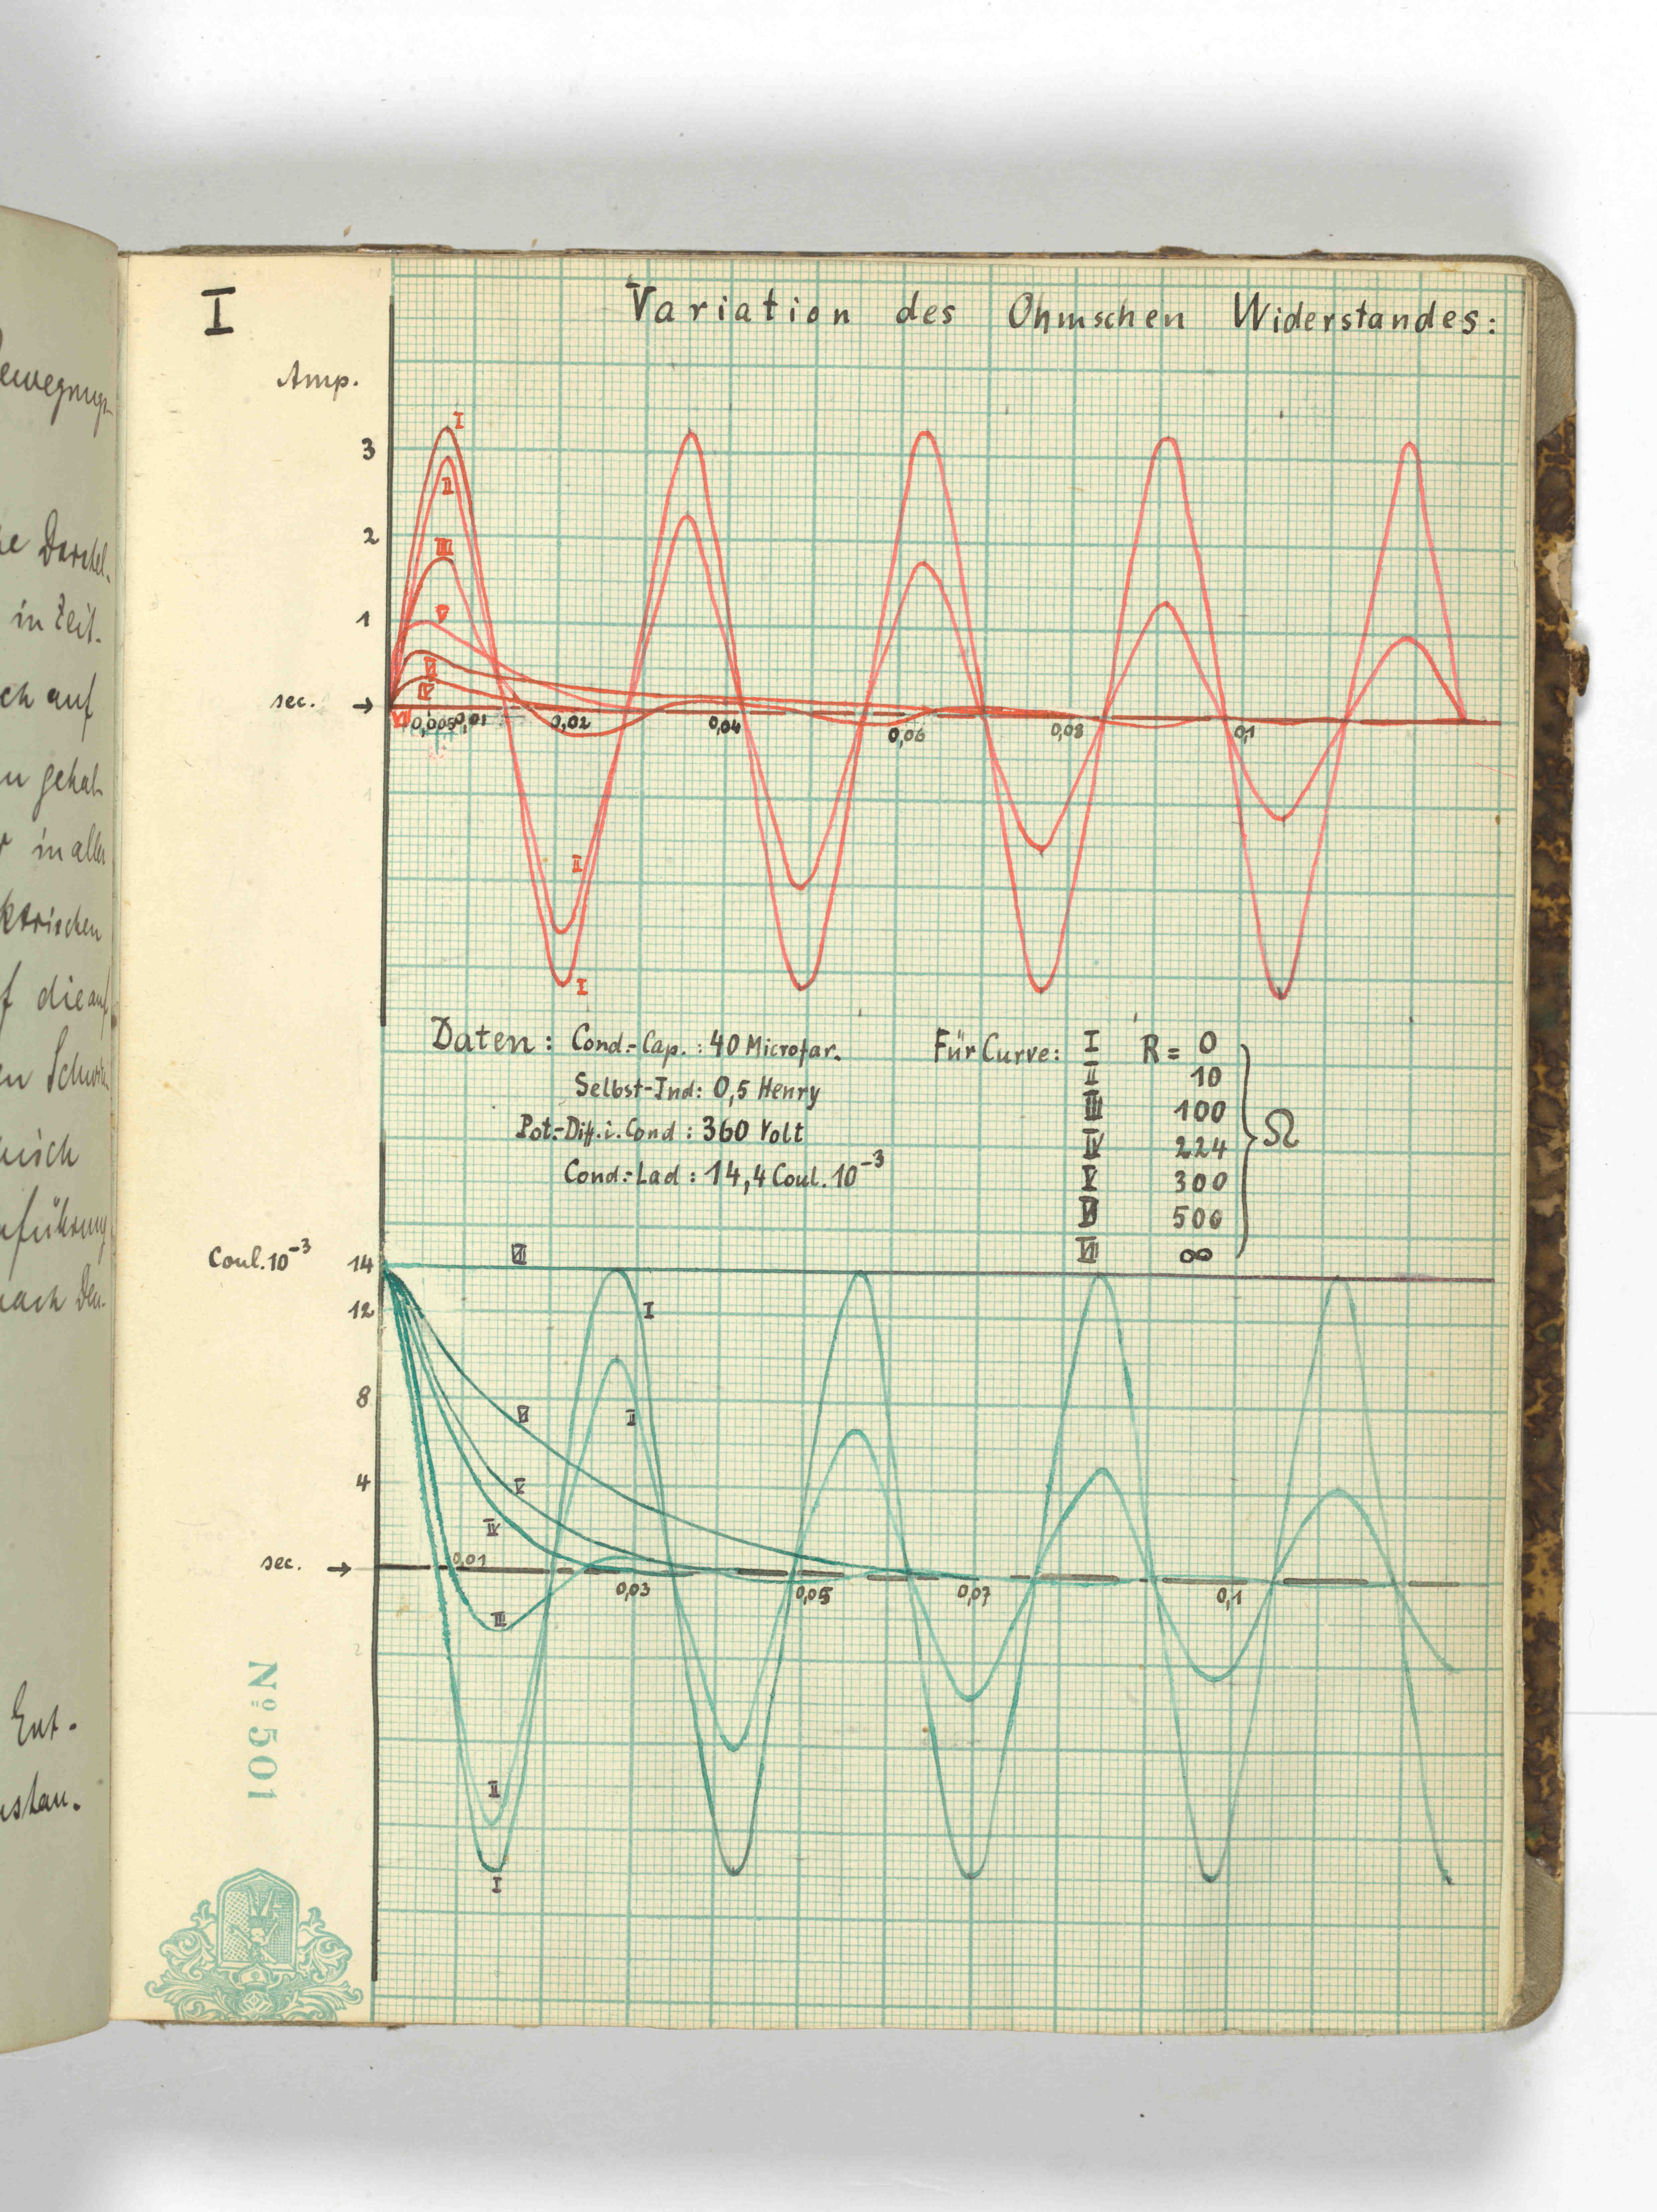 I
Variation des Ohmschen Widerstandes:
Amp.
3
2
1
sec. →
0,005 0,01 0,02 0,04 0,06 0,08 0,1
I
II
III
V
II
I
Daten: Cond.-Cap.: 40 Microfar.
Selbst-Ind: 0,5 Henry
Pot.-Diff.i.Cond: 360 Volt
Cond.-Lad: 14,4 Coul. 10⁻³
Für Curve: I R = 0
II 10
III 100
IV 224
V 300
VI 500
VII ∞
Ω
Coul. 10⁻³
14
12
8
4
VII
I
II
VI
V
IV
sec. →
0,01 0,03 0,05 0,07 0,1
III
II
I
Nº 501
ne Darstel-
in Zeit-
ch auf
n gehal-
r in aller
ktrischen
f die auf
nach den-
Ent-